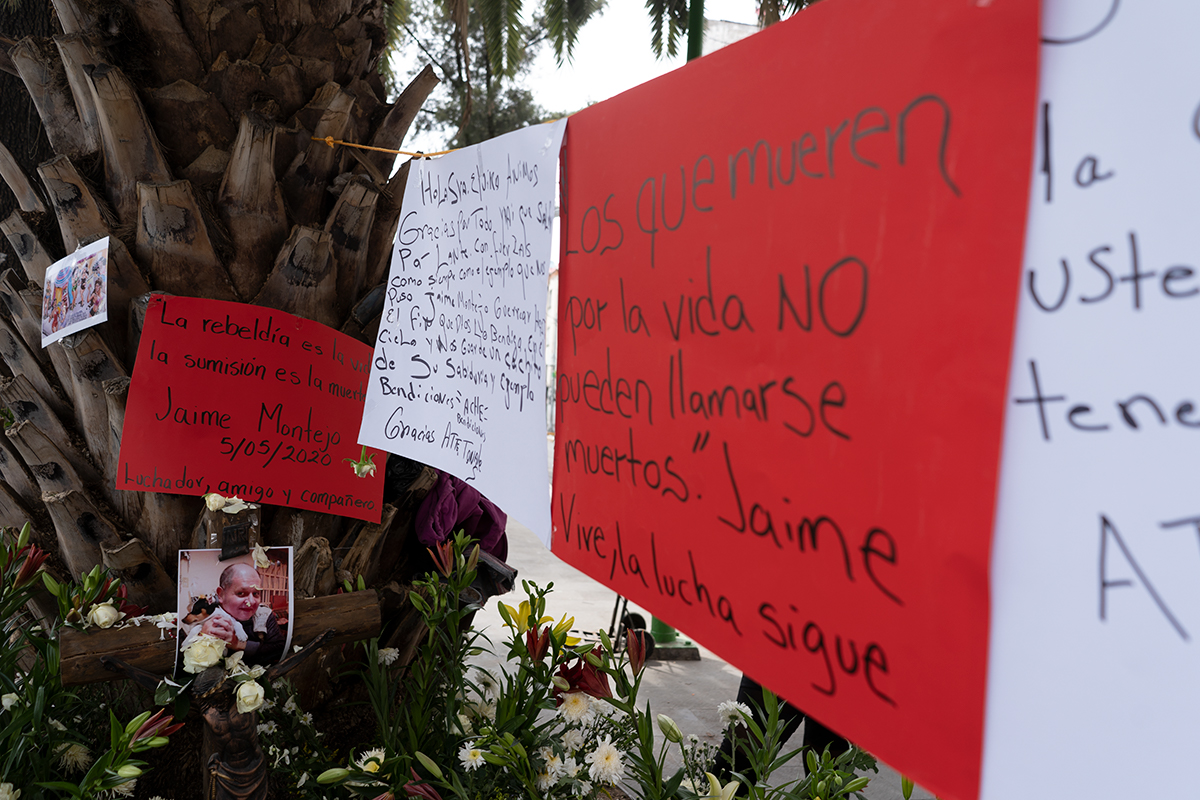 La rebeldía es la
la sumisión es la muerte
Jaime Montejo
5/05/2020
Luchador, amigo y compañero
Hola Sra. Elvira Animos
Gracias por Todo y
Pa-Lante. con
como siempre como el ejemplo que Nos
Puso Jaime Montejo Guerrear
El fin que Dios Lo Bendiga en el
cielo y Nos
de Su Sabiduria y ejemplo
Bendiciones "ACHE
Bendiciones
Gracias ATE
Los que mueren
por la vida NO
pueden llamarse
muertos." Jaime
Vive, la lucha sigue
la
uste
tene
AT